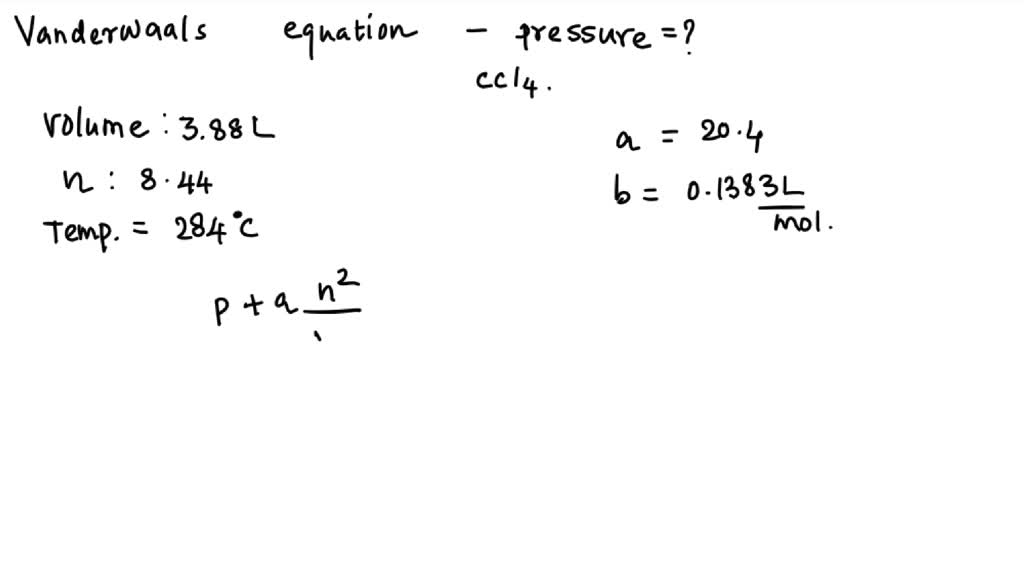 Vanderwaals equation - pressure = ?
ccl4.
Volume : 3.88 L
n : 8.44
Temp. = 284°C
a = 20.4
b = 0.1383 L/mol.
p + a n²/